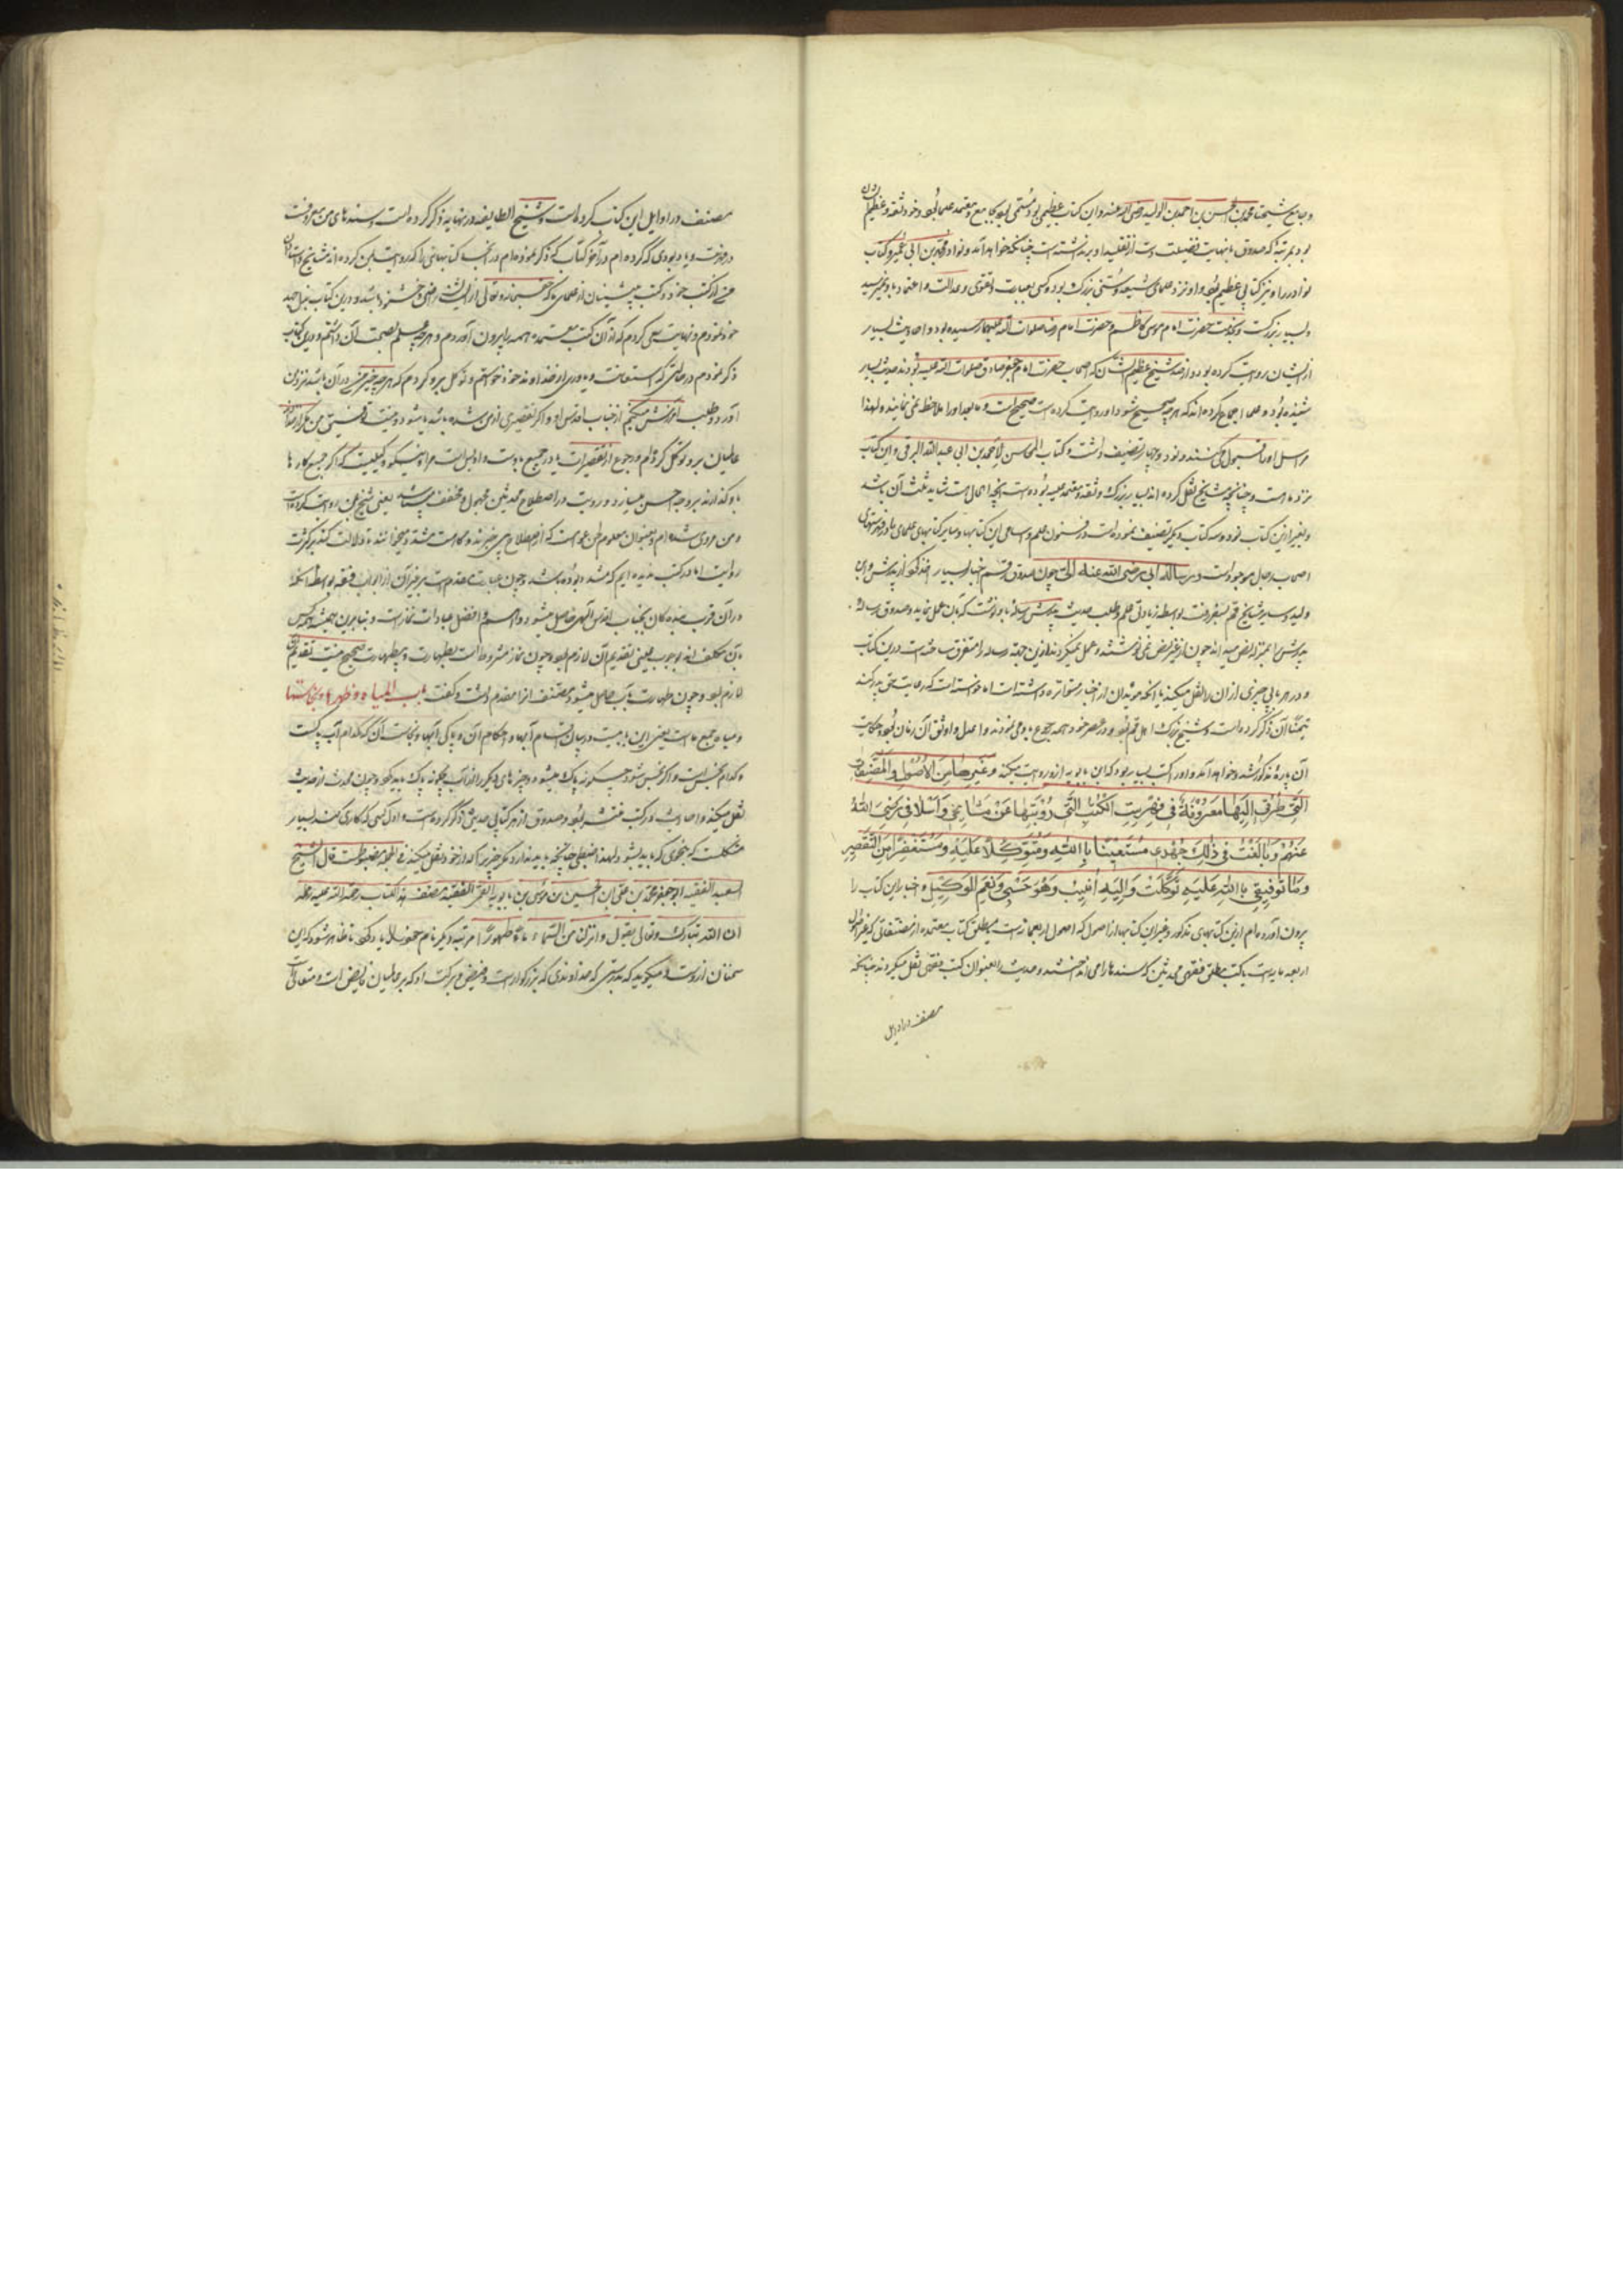 و جامع شیخنا محمد بن الحسن بن احمد بن الولید رضی الله عنه و این کتاب عظیمی بود و مسمی بود بجامع و معتمد علما بود و خود ثقه و عظیم الشان
بود بمرتبهٔ که صدوق با نهایت فضیلت دست از تقلید او بر نداشته است چنانکه خواهد آمد و نوادر محمد بن ابی عمیر و کتاب
نوادر را و نیز کتابی عظیم بود و او نزد علمای شیعه و سنی بزرگ بود و کسی بعبادت و تقوی و عدالت و اعتماد باو نمیرسید
و بسیار بزرگست و بخدمت حضرت امام موسی کاظم و حضرت امام رضا صلوات الله علیهما رسیده بود و احادیث بسیار
از ایشان روایت کرده بود و از صد شیخ عظیم الشان که اصحاب حضرت امام جعفر صادق صلوات الله علیه بودند حدیث بسیار
شنیده بود و علما اجماع کرده اند که هر چه صحیح شود او روایت کرده است صحیح است و ما بعد او را ملاحظه نمی نمایند و لهذا
مراسیل او را قبول میکنند و نود و چهار تصنیف داشت و کتاب المحاسن لاحمد بن ابی عبد الله البرقی و این کتاب
نزد ما است و چنانچه مشایخ نقل کرده اند بسیار بزرگ و ثقه و معتمد علیه بوده است و آنچه الحال هست شاید ثلث آن باشد
و بغیر از این کتاب نود و سه کتاب دیگر تصنیف نموده است در فنون علم و اسامی این کتابها و سایر کتابهای علمای ما در فهرستهای
اصحاب رجال موجود است و رسالة ابی رضی الله عنه الیّ چون صدوق در قم اخبار بسیار اخذ کرد از پدرش و ابن
ولید و سایر مشایخ قم بسفر رفت بواسطه زیادتی علم و طلب حدیث پدرش رساله باو نوشت که بآن عمل نماید و صدوق رساله
پدرش را بمنزله نص میداند چون از غیر نص نمی نوشتند و عمل نمیکردند از این جهة رساله را متفرق ساخته است در این کتاب
و در هر بابی چیزی از آن را نقل میکند با آنکه مؤیدان از اخبار متواتره داشته است اما خواسته است که رعایت حق پدر کند
تیمنا آن ذکر کرده است و شیخ بزرگ اهل قم بود و در عصر خود و همه رجوع باو می نمودند و اعدل و اوثق آن زمان بود و حکایت
آن پاره مذکور شد و خواهد آمد و او را کتب بسیار بود که ابن بابویه از او روایت میکند و غیرها من الاصول و المصنفات
التی طرقی الیها معروفة فی فهرست الکتب التی رویتها عن مشایخی و اسلافی رضی الله
عنهم و بالغت فی ذلک جهدی مستعینا بالله و متوکلا علیه و مستغفرا من التقصیر
و ما توفیقی الا بالله علیه توکلت و الیه انیب و هو حسبی و نعم الوکیل و اخبار این کتاب را
بیرون آورده ام از این کتابهای مذکور و غیر این کتابها از اصول که اصول اربعمائه است
اربعمائه است یا کتب مطلق فقهی محدثین که سندها را می انداختند و حدیث را بعنوان کتب فقهی نقل میکردند چنانکه
مصنف در اوایل
مصنف در اوایل این کتاب کرده است و شیخ الطایفه در نهایه ذکر کرده است و سندهای من معروفست
در فهرست و یاد بودی که کرده ام در آخر کتاب که ذکر نموده ام در آنجا کتابهائی را که روایت بمن کرده اند مشایخ و استادان
من از کتب خود و کتب پیشینیان از علمای ما که حق سبحانه و تعالی از ایشان راضی و خشنود باشد و در این کتاب بذل جهد
خود نمودم و نهایت سعی کردم که از آن کتب معتمده همه را بیرون آوردم و هر چه علم بصحت آن داشتم در این کتاب
ذکر نمودم در حالتی که استعانت و یاوری از خداوند خود خواستم و توکل بر او کردم که هر چه خیر من در آن باشد بر زبان
آورد و طلب آمرزش میکنم از جناب اقدس او اگر تقصیری از من شده باشد یا بشود و نیست توفیق من مگر از خداوند
عالمیان بر او توکل کرده ام و رجوع از تقصیرات یا در جمیع با اوست و او بس است مرا و نیکو وکیلیست که اگر جمیع کارها
باو گذارند بر وجه احسن میسازد و رویت در اصطلاح محدثین مجهول و مخفف میباشد یعنی شیخ بمن روایت کرده است
روایت اما در کتب ندیده ایم که مشدد بوده باشد و چون عبادت مقدم است بر غیر آن از ابواب فقه بواسطه آنکه
در آن قرب بندگان بجناب اقدس الهی حاصل میشود و اهم و افضل عبادات نماز است و بنابرین همیشه همه کس
بآن مکلف اند بوجوب یعنی تقدیم آن لازم بود و چون نماز مشروط است بطهارت و بیطهارت صحیح نیست تقدیم آن
لازم بود و چون طهارت بآب حاصل میشود مصنف آنرا مقدم داشت و گفت باب المیاه و طهرها و نجاستها
و میاه جمع ماء است یعنی این بابیست در بیان اقسام آبها و احکام آن و پاکی آبها و نجاست آن که کدام آب پاکست
و کدام نجس است و اگر نجس شود چگونه پاک میشود و چیزهای دیگر را از آب چگونه پاک باید کرد و چون محدث از حدیث
نقل میکند و احادیث در کتب منتشر بود و صدوق از هر کتابی حدیثی ذکر کرده است و اول کسی که کاری کند بسیار
مشکلست که بنحوی که باید بشود و لهذا ضبطی چنانچه باید ندارد و گر چیزیرا که از خود نقل میکند فی الجمله مضبوط است قال الشیخ
السعید الفقیه ابو جعفر محمد بن علی بن الحسین بن موسی بن بابویه القمی الفقیه مصنف هذا الکتاب رحمة الله علیه و
ان الله تبارک و تعالی یقول و انزلنا من السماء ماء طهورا مرتبه دیگر نام خود یاد کرد تا ظاهر شود که این
سخنان از اوست و میگوید که بدرستی که خداوندی که بزرگوار است و فیض و برکت او که بر عالمیان فایض است و متعالی است